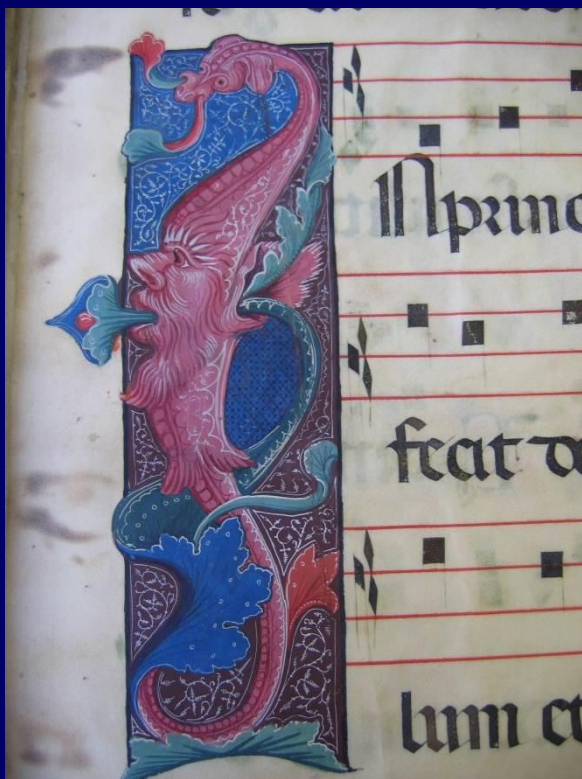 IN princ
fecit de
lum et